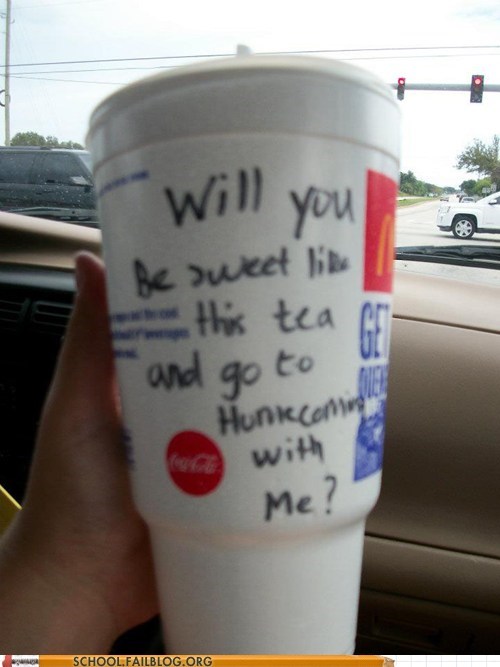 Will you
Be sweet like
this tea
and go to
Homecoming
with
Me?
Coca-Cola
GET
SCHOOL.FAILBLOG.ORG